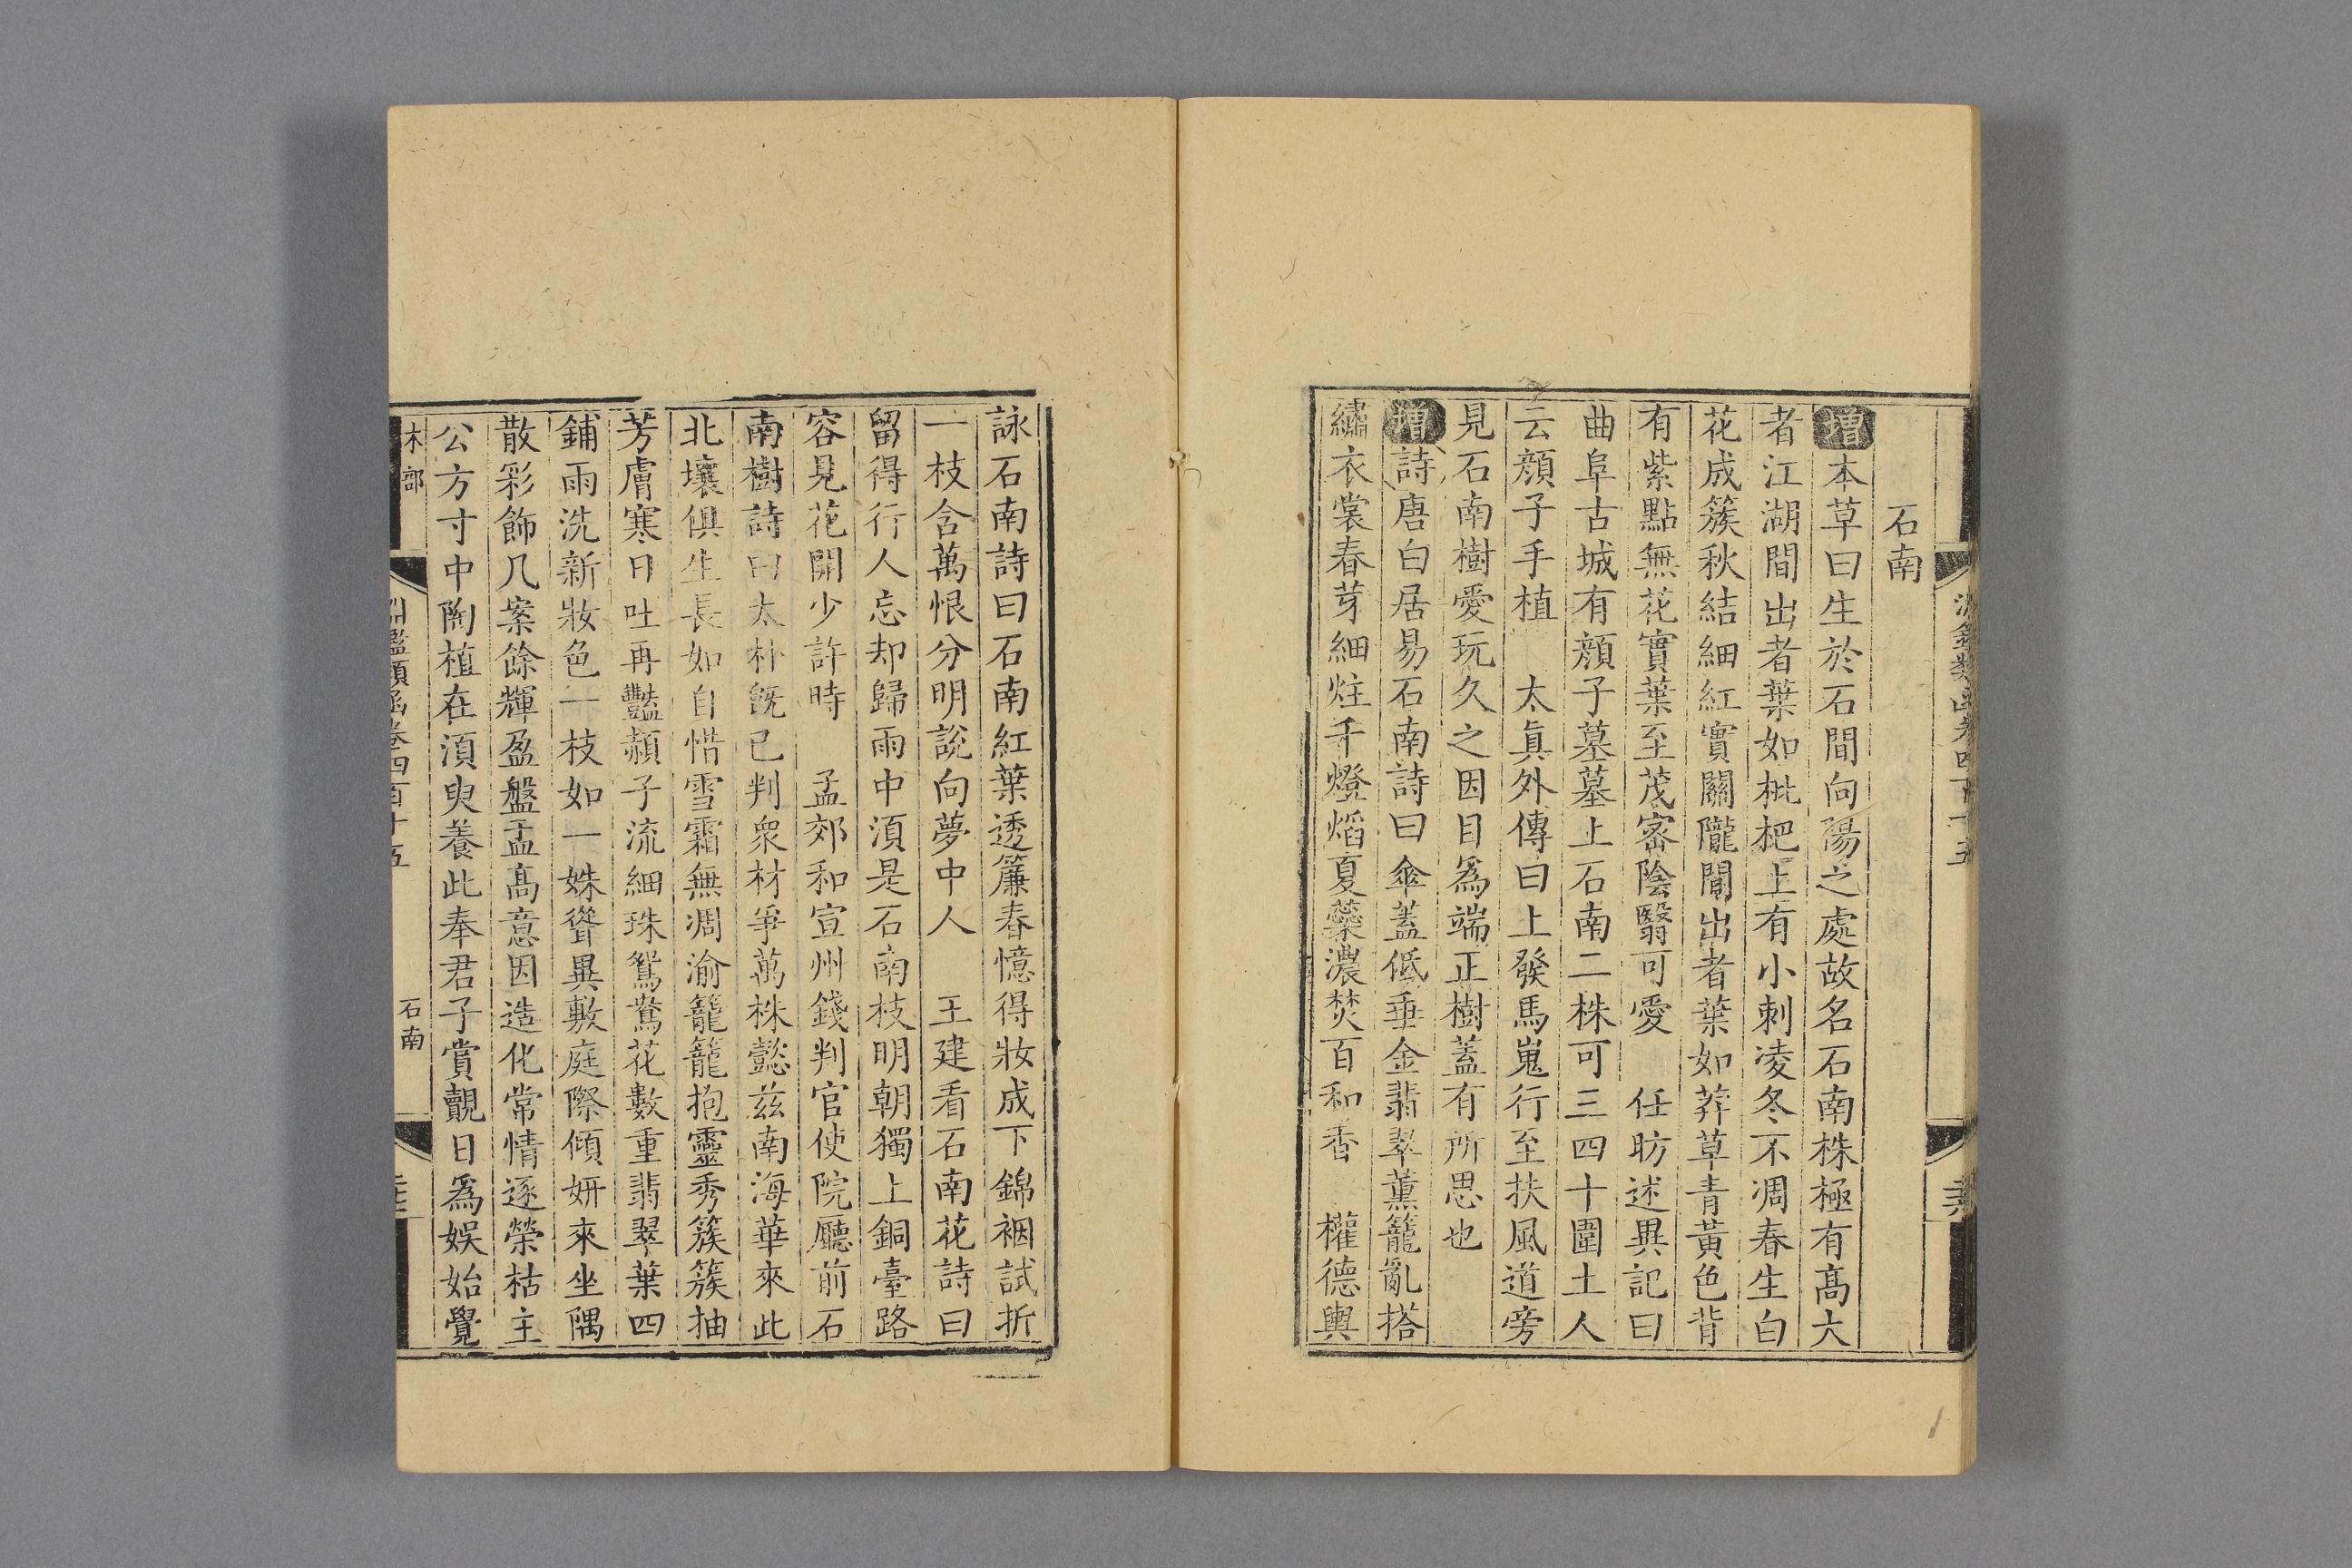 石南
增本草曰生於石間向陽之處故名石南株極有高大
者江湖間出者葉如枇杷上有小刺凌冬不凋春生白
花成簇秋結細紅實關隴間出者葉如莽草青黃色背
有紫點無花實葉至茂密陰翳可愛 任昉述異記曰
曲阜古城有顏子墓墓上石南二株可三四十圍土人
云顏子手植 太眞外傳曰上發馬嵬行至扶風道旁
見石南樹愛玩久之因目爲端正樹蓋有所思也
增詩唐白居易石南詩曰傘蓋低垂金翡翠薰籠亂搭
繡衣裳春芽細炷千燈焰夏蘂濃焚百和香 權德輿
詠石南詩曰石南紅葉透簾春憶得妝成下錦裀試折
一枝含萬恨分明說向夢中人 王建看石南花詩曰
留得行人忘却歸雨中須是石南枝明朝獨上銅臺路
容見花開少許時 孟郊和宣州錢判官使院廳前石
南樹詩曰太朴旣已判衆材爭萬株懿兹南海華來此
北壤俱生長如自惜雪霜無凋渝籠籠抱靈秀簇簇抽
芳膚寒日吐再豔赬子流細珠鴛鴦花數重翡翠葉四
鋪雨洗新妝色一枝如一姝聳異敷庭際傾妍來坐隅
散彩飾几案餘輝盈盤盂高意因造化常情逐榮枯主
公方寸中陶植在須臾養此奉君子賞覿日爲娛始覺
木部
淵鑑類函卷四百十五
石南